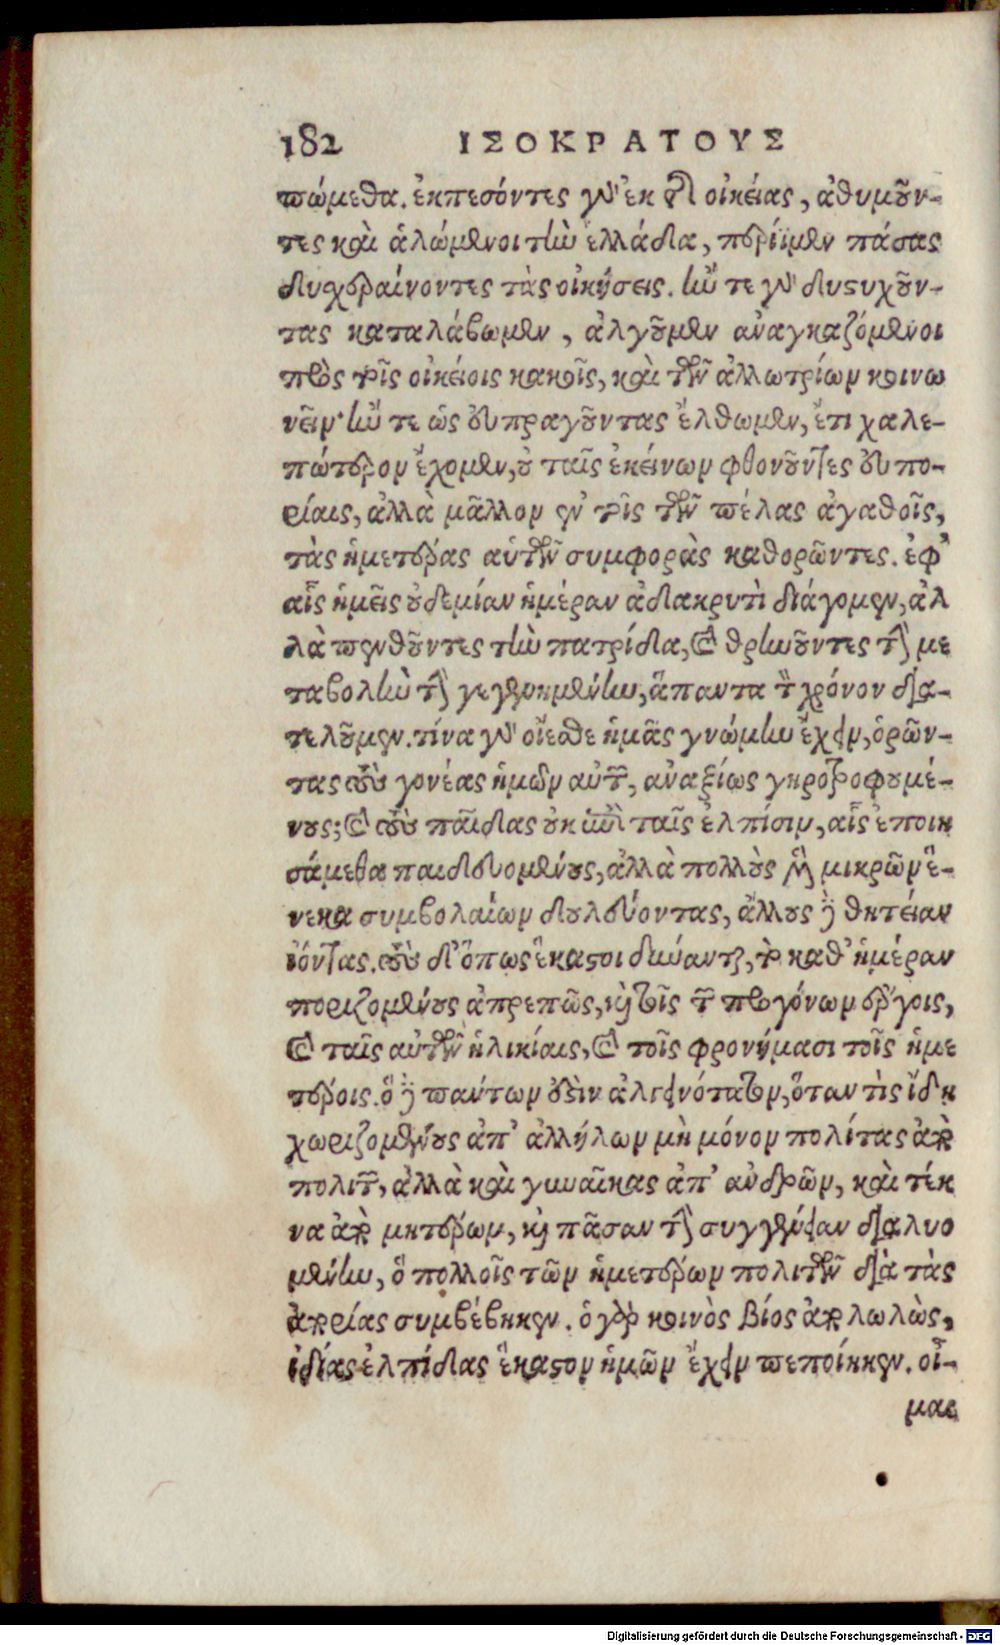 182 ΙΣΟΚΡΑΤΟΥΣ
πώμεθα. ἐκπεσόντες γὰρ ἐκ τῆς οἰκείας, ἀθυμοῦν-
τες καὶ ἀλώμενοι τὴν ἑλλάδα, περίϊμεν πάσας
δυχεραίνοντες τὰς οἰκήσεις. ἤν τε γὰρ δυστυχοῦν-
τας καταλάβωμεν, ἀλγοῦμεν ἀναγκαζόμενοι
πρὸς τοῖς οἰκείοις κακοῖς, καὶ τῶν ἀλλωτρίων κοινω
νεῖν· ἤν τε ὡς εὐπραγοῦντας ἔλθωμεν, ἔτι χαλε-
πώτερον ἔχομεν, οὐ ταῖς ἐκείνων φθονοῦντες εὐπο-
ρίαις, ἀλλὰ μᾶλλον ἐν τοῖς τῶν πέλας ἀγαθοῖς,
τὰς ἡμετέρας αὑτῶν συμφορὰς καθορῶντες. ἐφ'
αἷς ἡμεῖς οὐδεμίαν ἡμέραν ἀδακρυτὶ διάγομεν, ἀλ
λὰ πενθοῦντες τὴν πατρίδα, καὶ θρηνοῦντες τὴν με
ταβολὴν τὴν γεγενημένην, ἅπαντα τὸν χρόνον δια-
τελοῦμεν. τίνα γὰρ οἴεσθε ἡμᾶς γνώμην ἔχειν, ὁρῶν-
τας τοὺς γονέας ἡμῶν αὐτῶν, ἀναξίως γηροτροφουμέ-
νους; καὶ τοὺς παῖδας οὐκ ἐπὶ ταῖς ἐλπίσιν, αἷς ἐποιη
σάμεθα παιδευομένους, ἀλλὰ πολλοὺς μὲν μικρῶν ἕ-
νεκα συμβολαίων δουλεύοντας, ἄλλους δὲ θητείαν
ἰόντας. τοὺς δ' ὅπως ἕκαστοι δύνανται, τὸ καθ' ἡμέραν
ποριζομένους ἀπρεπῶς, καὶ τοῖς τῶν προγόνων ἔργοις,
καὶ ταῖς αὐτῶν ἡλικίαις, καὶ τοῖς φρονήμασι τοῖς ἡμε
τέροις. ὃ δὲ πάντων ἐστὶν ἀλγεινότατον, ὅταν τὶς ἴδη
χωριζομένους ἀπ' ἀλλήλων μὴ μόνον πολίτας ἀπὸ
πολιτῶν, ἀλλὰ καὶ γυναῖκας ἀπ' ἀνδρῶν, καὶ τέκ
να ἀπὸ μητέρων, καὶ πᾶσαν τὴν συγγένειαν διαλυο
μένην, ὃ πολλοῖς τῶν ἡμετέρων πολιτῶν διὰ τὰς
ἀπορίας συμβέβηκεν. ὁ γὰρ κοινὸς βίος ἀπολωλὼς,
ἰδίας ἐλπίδας ἕκαστον ἡμῶν ἔχειν πεποίηκεν. οἶ-
μαι
Digitalisierung gefördert durch die Deutsche Forschungsgemeinschaft - DFG